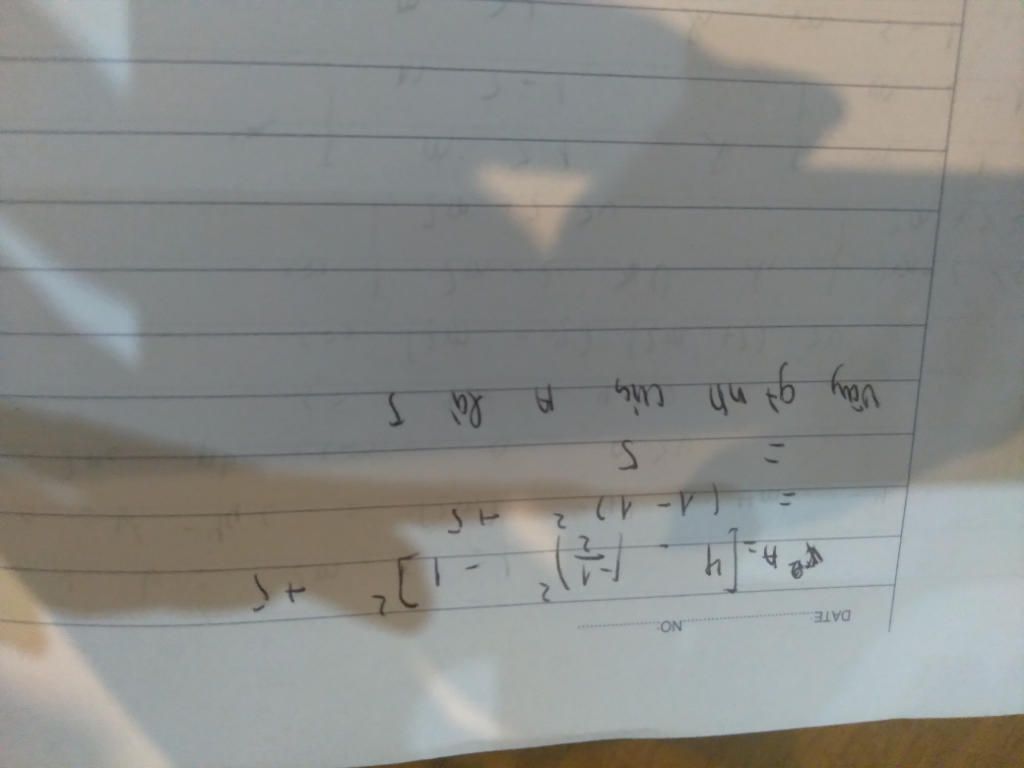 DATE: NO:
A = [4 . (-1/2)² - 1]² + 5
= (1 - 1)² + 5
= 5
vậy gt nn của A là 5